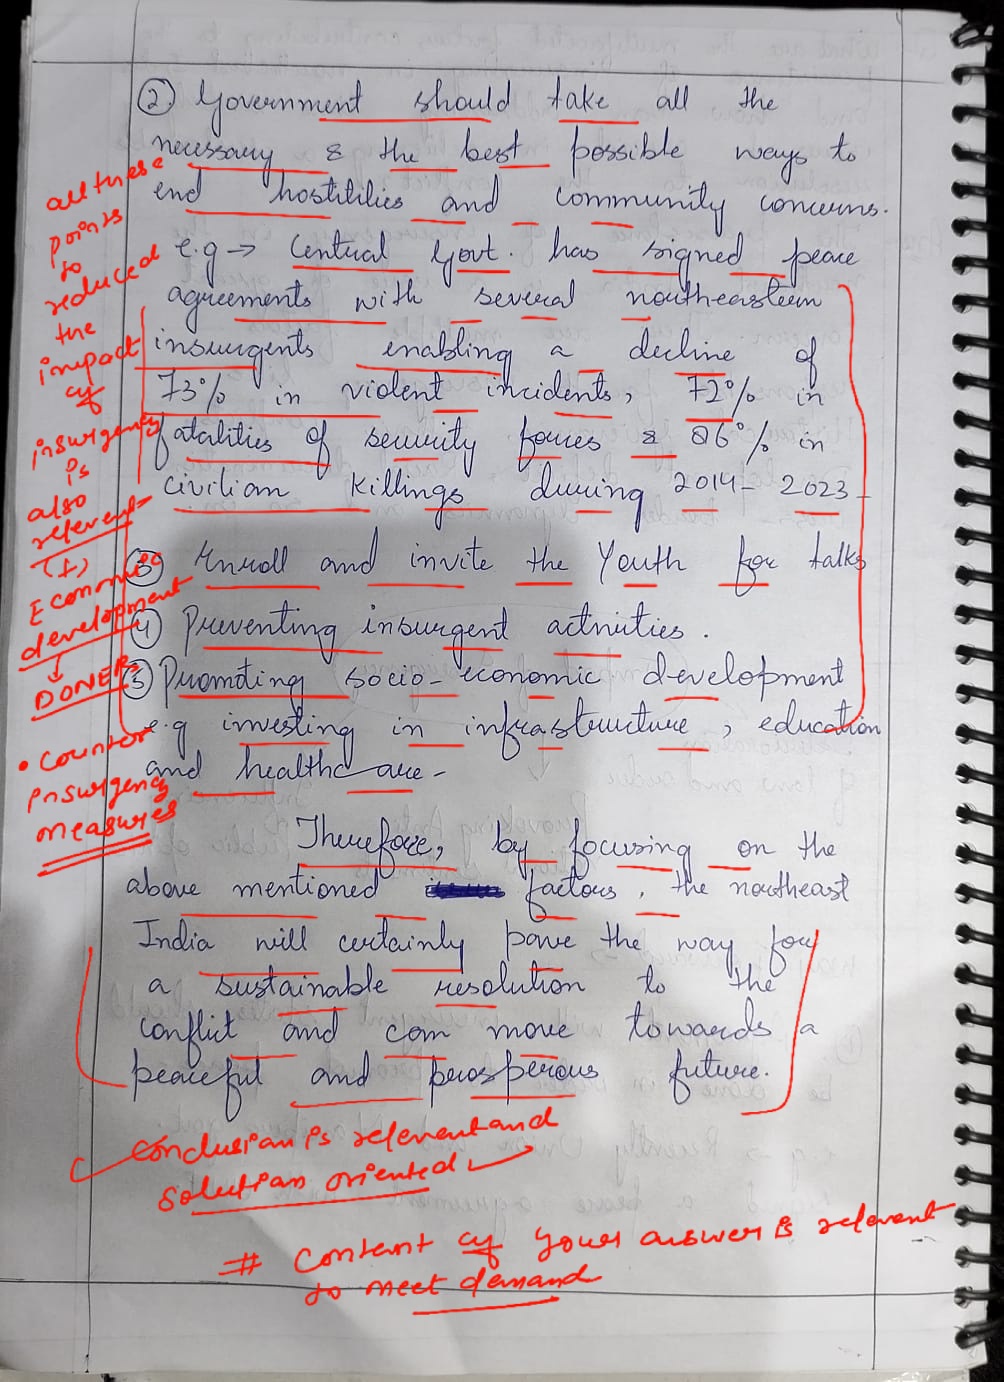 ② Government should take all the
necessary & the best possible ways to
end hostilities and community concerns.
e.g → Central Govt. has signed peace
agreements with several northeastern
insurgents enabling a decline of
73% in violent incidents, 72% in
fatalities of security forces & 86% in
civilian killings during 2014- 2023-
③ Enroll and invite the Youth for talks
④ Preventing insurgent activities.
⑤ Promoting socio-economic development
e.g investing in infrastructure, education
and healthcare-
Therefore, by focusing on the
above mentioned factors, the northeast
India will certainly pave the way for
a sustainable resolution to the
conflict and can move towards a
peaceful and prosperous future.
all these
points
to
reduced
the
impact
of
insurgency
is
also
relevent
(+)
Economic
development
↓
DONER
• Counter
insurgency
measures
Conclusion is relevent and
solution oriented
# Content of your answer is relevent
to meet demand